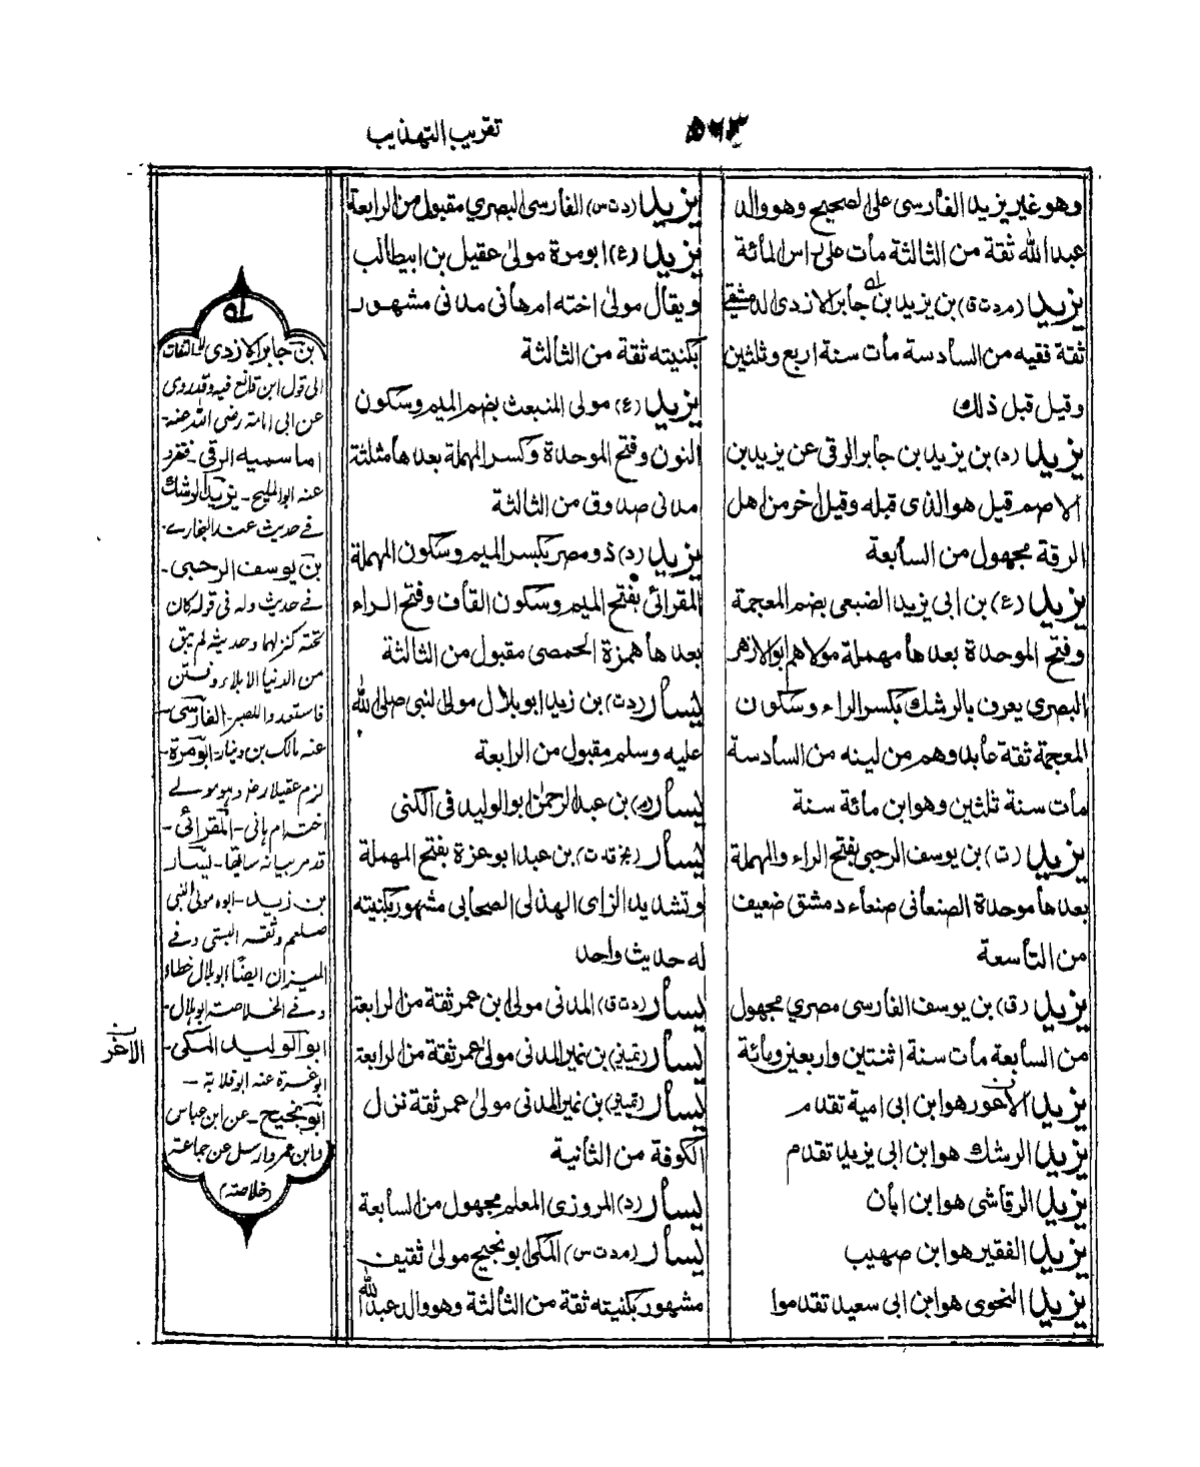 تقريب التهذيب
٥٦٣
وهو غير يزيد الفارسى على الصحيح وهو والد
عبد الله ثقة من الثالثة مات على راس المائة
يزيد (م د ت ق) بن يزيد بن جابر الازدى الدمشقي
ثقة فقيه من السادسة مات سنة اربع وثلثين
وقيل قبل ذلك
يزيد (د) بن يزيد بن جابر الرقى عن يزيد بن
الاصم قيل هو الذى قبله وقيل اخر من اهل
الرقة مجهول من السابعة
يزيد (ع) بن ابى يزيد الضبعى بضم المعجمة
وفتح الموحدة بعدها مهملة مولاهم ابو الازهر
البصري يعرف بالرشك بكسر الراء وسكون
المعجمة ثقة عابد وهم من لينه من السادسة
مات سنة ثلثين وهو ابن مائة سنة
يزيد (ت) بن يوسف الرحبى بفتح الراء والمهملة
بعدها موحدة الصنعانى صنعاء دمشق ضعيف
من التاسعة
يزيد (ق) بن يوسف الفارسى مصري مجهول
من السابعة مات سنة اثنتين واربعين ومائة
يزيد الاعور هو ابن ابى امية تقدم
يزيد الرشك هو ابن ابى يزيد تقدم
يزيد الرقاشى هو ابن ابان
يزيد الفقير هو ابن صهيب
يزيد النحوى هو ابن ابى سعيد تقدموا
يزيد (د ت س) الفارسى البصري مقبول من الرابعة
يزيد (ع) ابو مرة مولى عقيل بن ابيطالب
ويقال مولى اخته ام هانى مدنى مشهور
بكنيته ثقة من الثالثة
يزيد (ع) مولى المنبعث بضم الميم وسكون
النون وفتح الموحدة وكسر المهملة بعدها مثلثة
مدنى صدوق من الثالثة
يزيد (د) ذو مصر بكسر الميم وسكون المهملة
المقرائى بفتح الميم وسكون القاف وفتح الراء
بعدها همزة الحمصى مقبول من الثالثة
يسار (د ت) بن زيد ابو بلال مولى النبى صلى الله
عليه وسلم مقبول من الرابعة
يسار بن عبد الرحمن ابو الوليد فى الكنى
يسار (بخ قد ت) بن عبد ابو عزة بفتح المهملة
وتشديد الزاى الهذلى الصحابى مشهور بكنيته
له حديث واحد
يسار (د ت ق) المدنى مولى ابن عمر ثقة من الرابعة
يسار (تمييز) بن نمير المدنى مولى عمر ثقة من الرابعة
يسار (تمييز) بن نمير المدنى مولى عمر ثقة نزل
الكوفة من الثانية
يسار (د) المروزى المعلم مجهول من السابعة
يسار (م د ت س) المكى ابو نجيح مولى ثقيف
مشهور بكنيته ثقة من الثالثة وهو والد عبد الله
له
بن جابر الازدى لا التفات
الى قول ابن قانع فيه وقد روى
عن ابى امامة رضى الله عنه۔
اما سميه الرقى۔ فتفرد
عنه ابو المليح۔ يزيد الرشك
فى حديث عند البخارى۔
بن يوسف الرحبى۔
فى حديث وله فى قوله كان
تحته كنز لهما وحديث لم يبق
من الدنيا الا بلاء وفتن
فاستعدوا للصبر۔ الفارسى۔
عنه مالك بن دينار۔ ابو مرة۔
لزم عقيلا رضى وهو مولى
اخته ام هانى۔ المقرائى۔
قد مر بيانه سابقا۔ يسار
بن زيد۔ ابوه مولى النبى
صلعم وثقه البستى وفى
الميزان ايضا ابو بلال خطاء
وفى الخلاصة ابو بلال۔
ابو الوليد المكى۔
ابو عزة عنه ابو قلابة ۔
ابو نجيح۔ عن ابن عباس
وابن عمر وارسل عن جماعة
(خلاصه)
الآخر